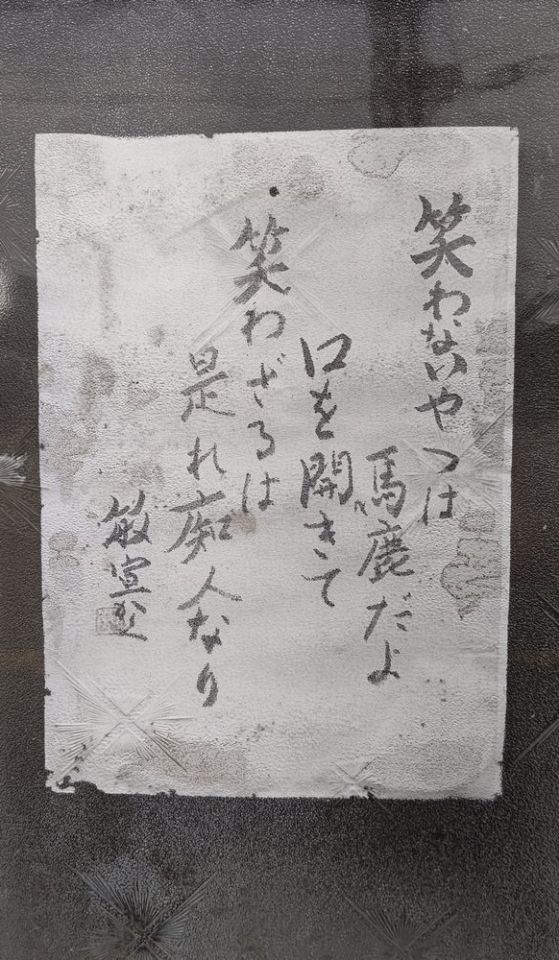 笑わないやつは
馬鹿だよ
口を開きて
笑わざるは
是れ痴人なり
敏宣